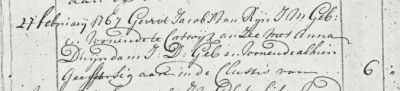 27 Februarij 1767 Gerrit Jacob Van Rijn J M Geb:
en woonende te Catwijk aan Zee met Anna
Duijndam J: D: Geb en woonende alhier
Geeft sig aan in de Classis van 6 "